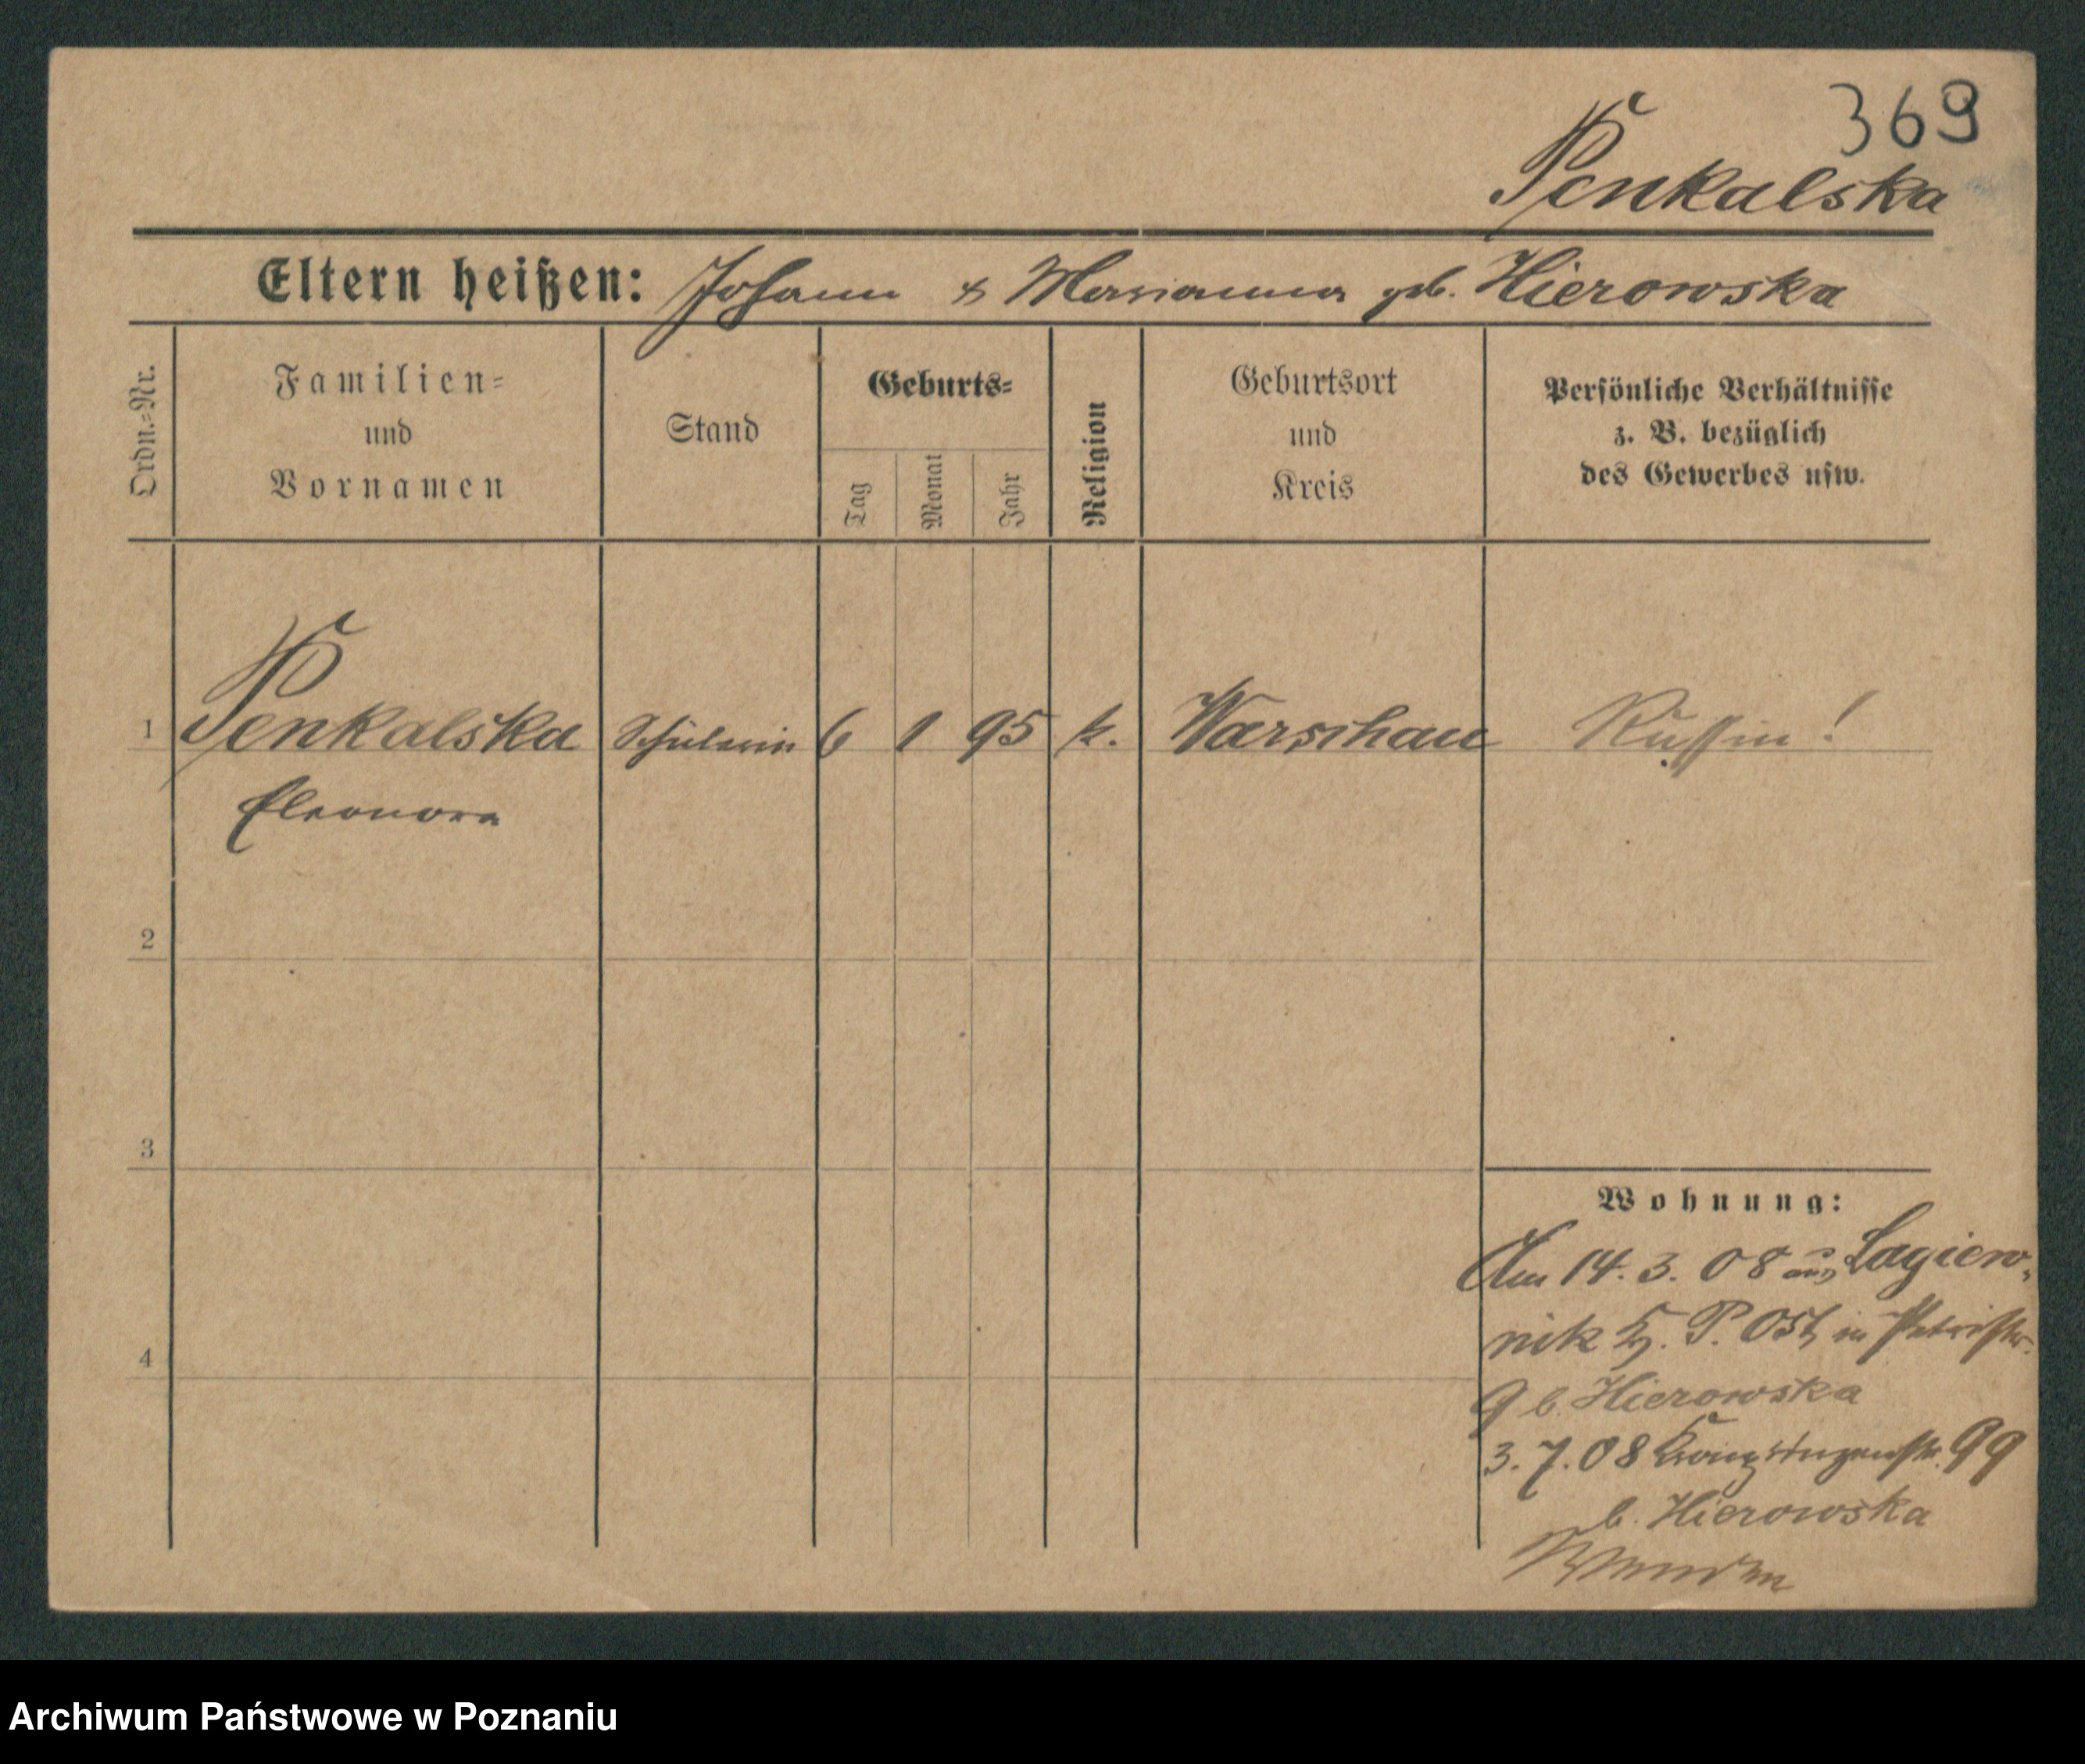 369
Penkalska
Eltern heißen: Johann & Marianna geb. Hierowska
Ordn.-Nr.
Familien-
und
Vornamen
Stand
Geburts-
Tag
Monat
Jahr
Religion
Geburtsort
und
Kreis
Persönliche Verhältnisse
z. B. bezüglich
des Gewerbes usw.
1 Penkalska Schülerin 6 1 95 k. Warschau Russin!
Eleonora
2
3
4
Wohnung:
Am 14. 3. 08 aus Lagiew-
nik Kr. P. Ost, in Petristr.
9 b. Hierowska
3. 7. 08 Kronprinzenstr. 99
b. Hierowska
Wenden
Archiwum Państwowe w Poznaniu